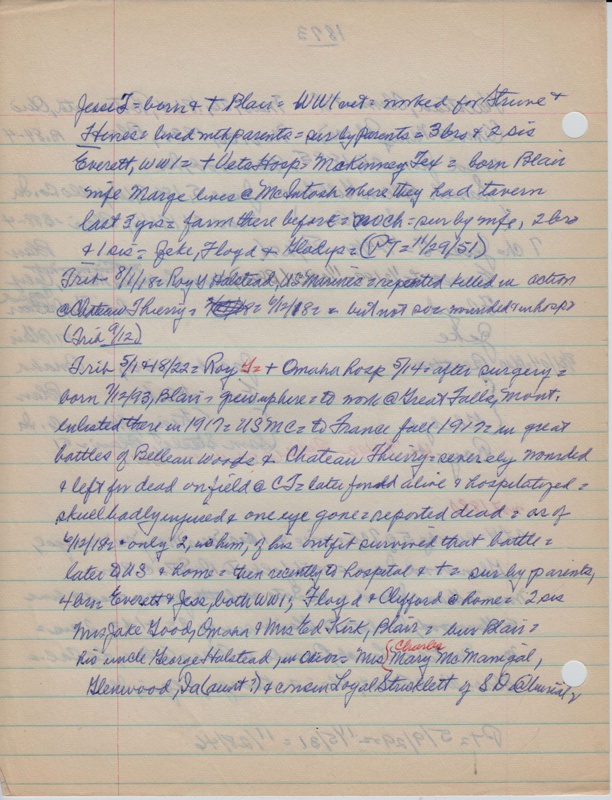 Jesse T = born & + Blair = WW1 vet = worked for Struve &
Hines = lived with parents = sur by parents = 3 bro & 2 sis
Everett, WW1 = + Vets Hosp = McKinney Tex = born Blair
wife Marge lives @ McIntosh where they had tavern
last 3 yrs = farm there before = no ch = sur by wife, 2 bro
& 1 sis = Jake, Floyd & Gladys = (PT = 11/29/51)
Trib 8/1/18 = Roy Y Halstead, US Marines = reported killed in action
@ Chateau Thierry = 6/12/18 = but not so = wounded & in hosp
(Trib 9/12)
Trib 5/18/22 = Roy Y = + Omaha hosp 5/14 = after surgery =
born 7/12/93, Blair = grew up here = to work @ Great Falls, Mont.
enlisted there in 1917 = USMC = to France fall 1917 = in great
battles of Belleau Woods & Chateau Thierry = severely wounded
& left for dead on field @ CT = later found alive & hospitalized =
skull badly injured & one eye gone = reported dead = as of
6/12/18 = & only 2, w him, of his outfit survived that battle =
later to US & home = then recently to hospital & + = sur by parents,
4 bro = Everett & Jess, both WW1, Floyd & Clifford @ home = 2 sis
Mrs Jake Good, Omaha & Mrs Ed Kirk, Blair = bur Blair =
his uncle George Halstead, = Mrs { Charles Mary McManigal,
Glenwood, Ia (aunt?) & cousin Loyal Stricklett of S D @ burial